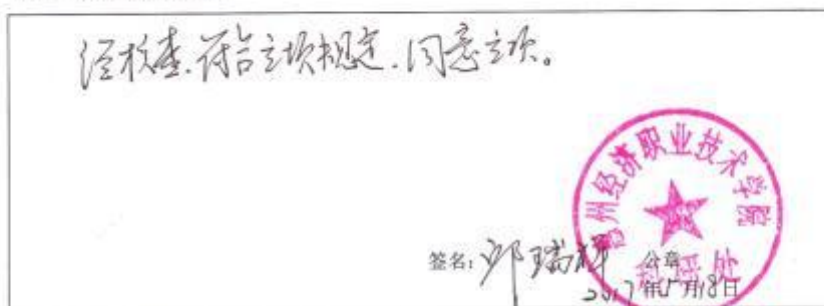 经核查,符合立项规定,同意立项。
惠州经济职业技术学院
签名: 瑞祥 公章
2017年5月18日